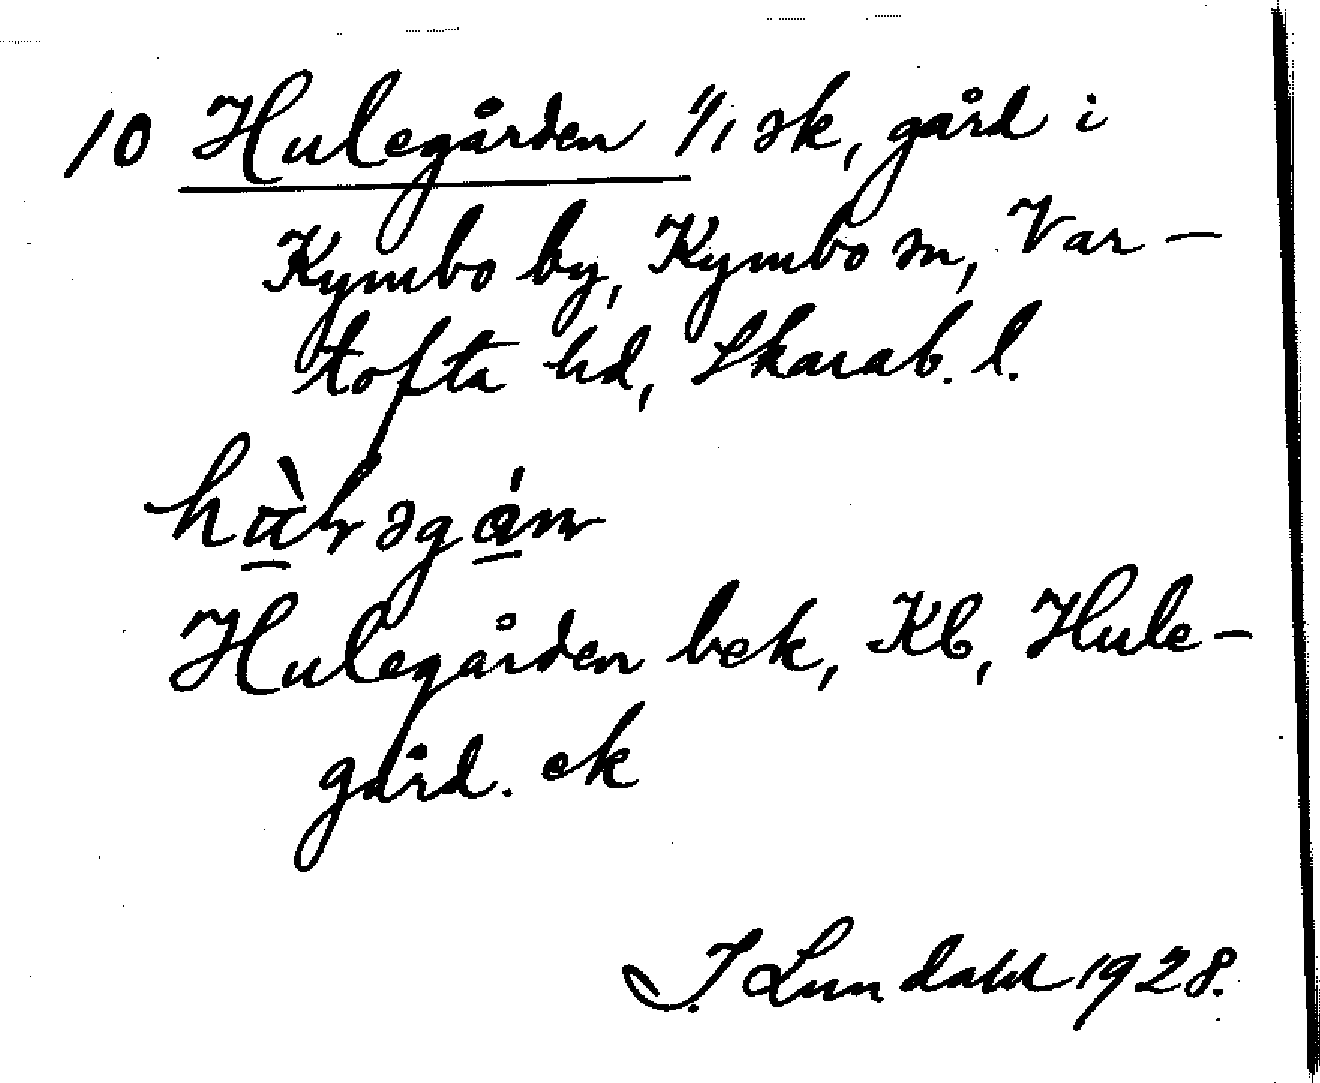 10 Hulegården 1/1 sk, gård i
Kymbo by, Kymbo sn, Var-
tofta hd, Skarab. l.
Hulegården bek, Kb, Hule-
gård. ek
I. Lundahl 1928.